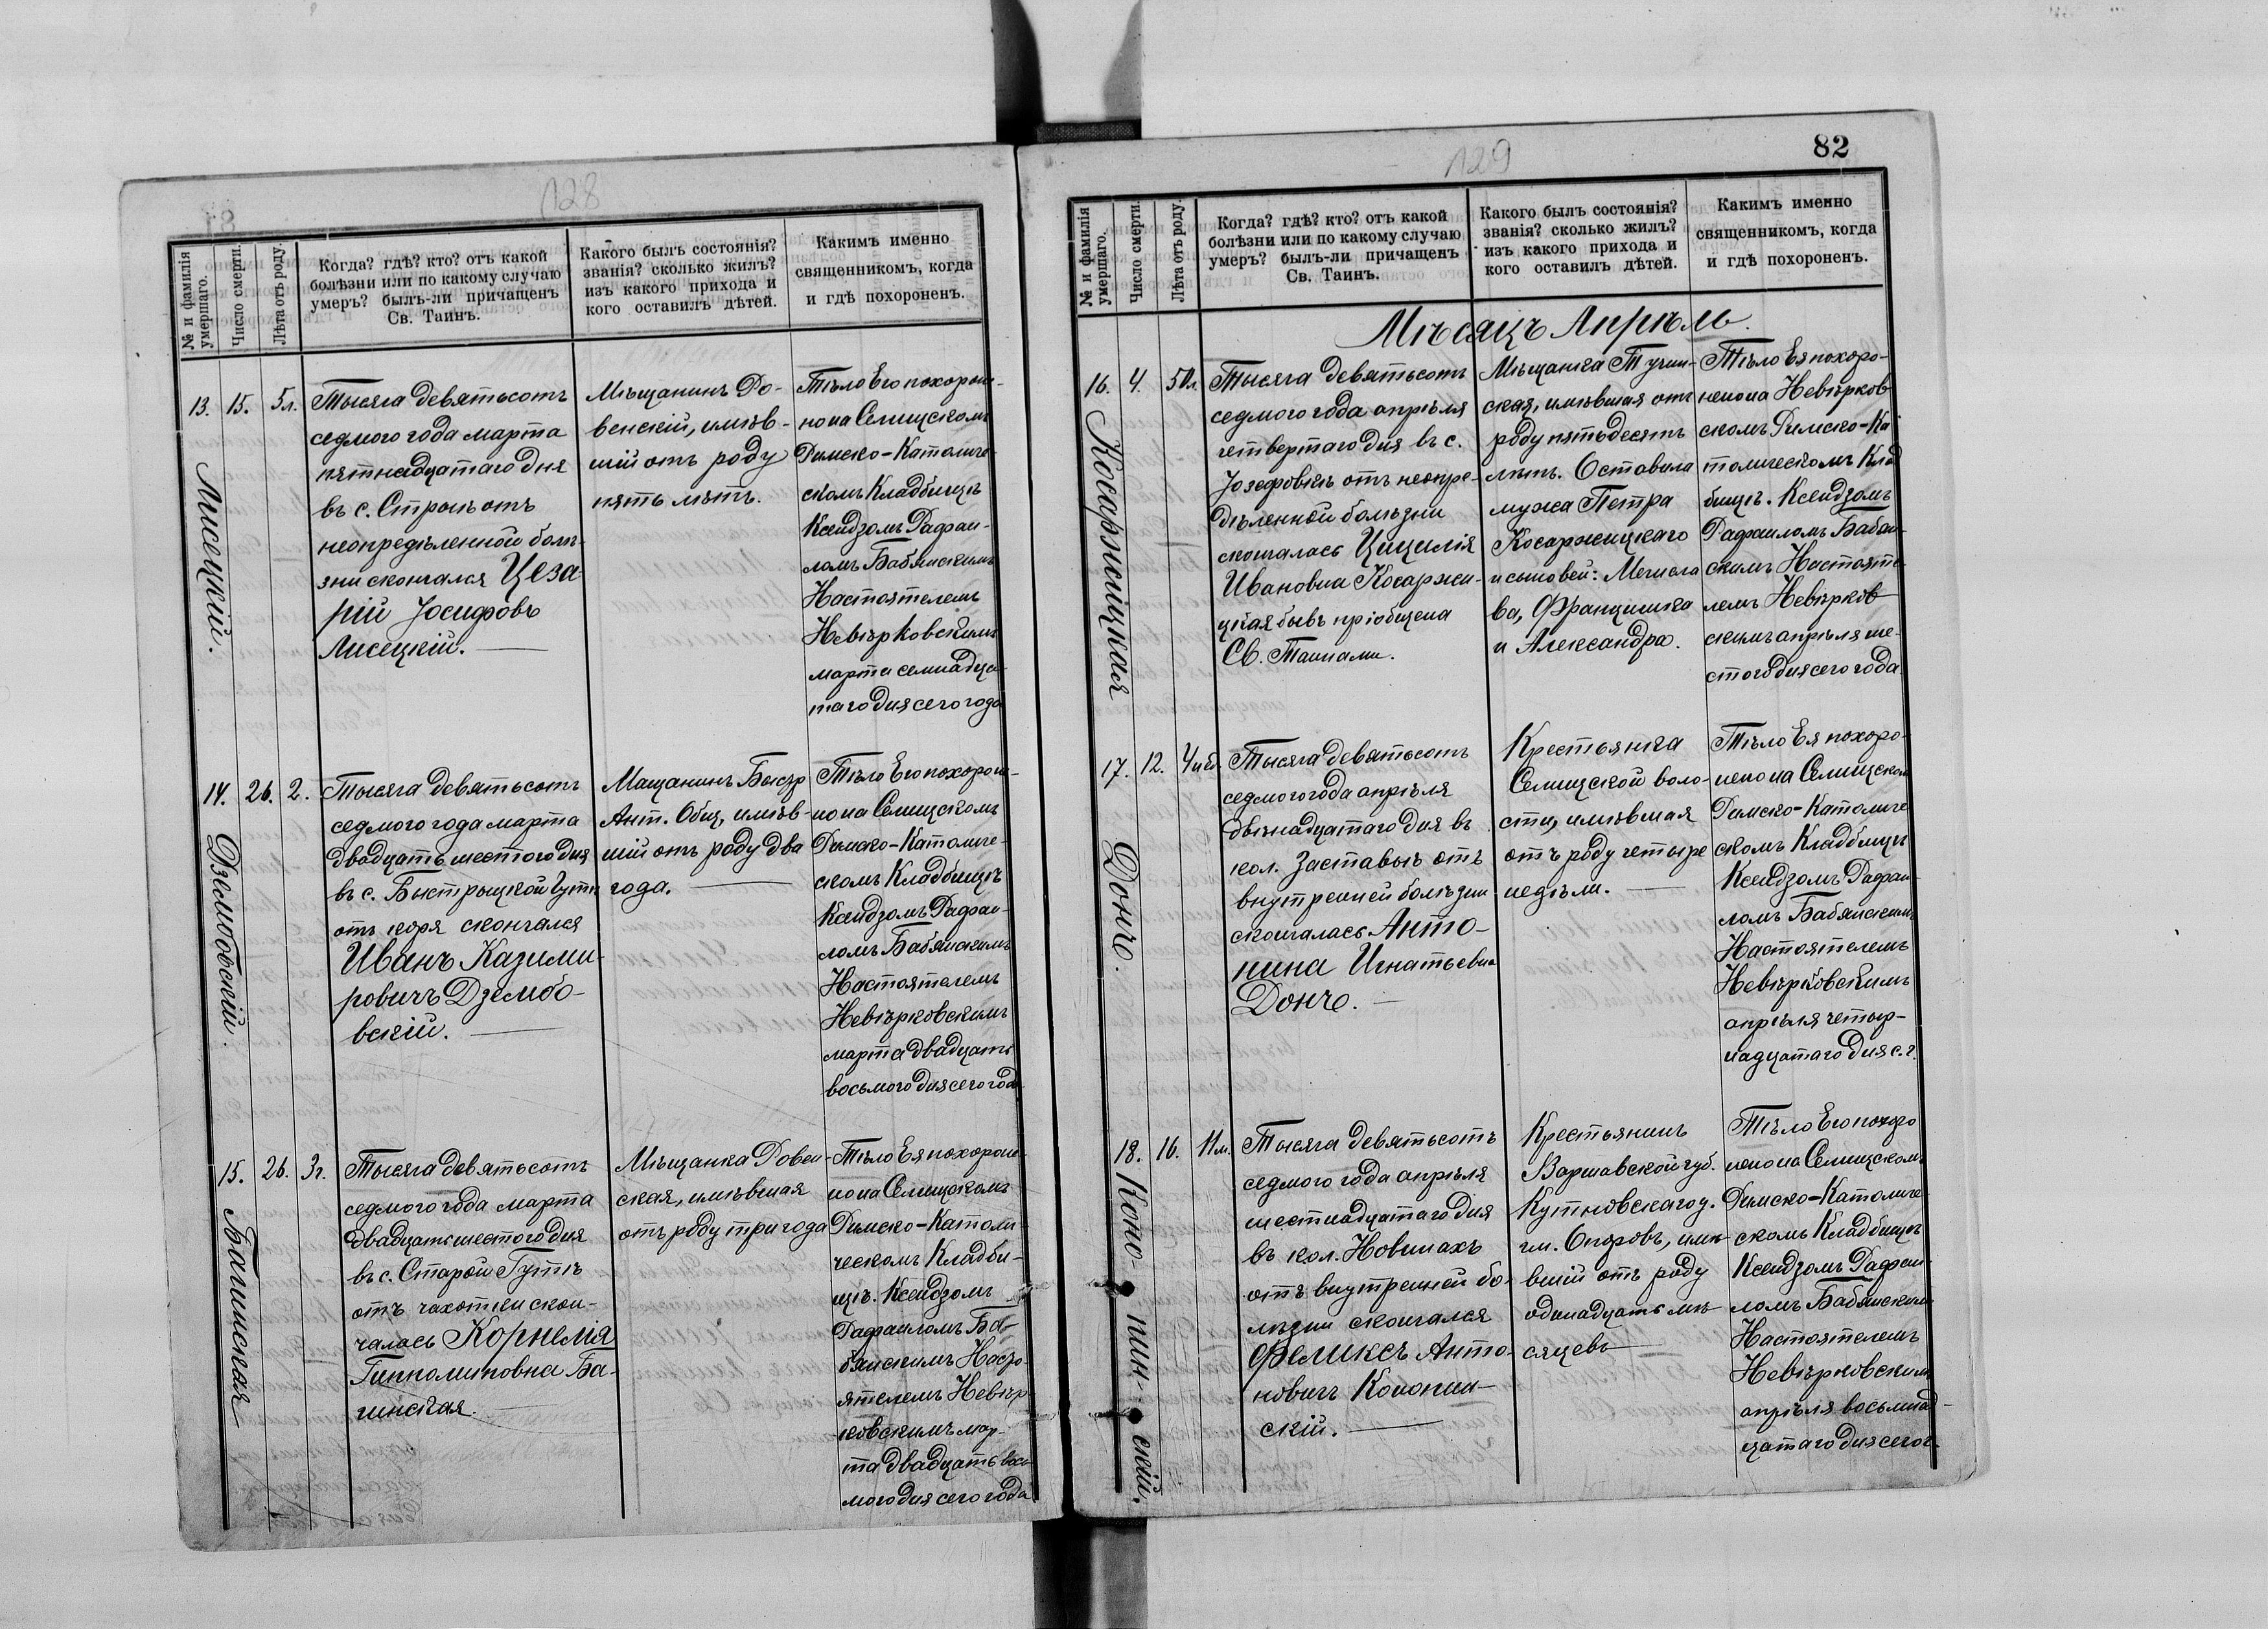 128
№ и фамилія умершаго.
Число смерти.
Лѣта отъ роду.
Когда? гдѣ? кто? отъ какой
болѣзни или по какому случаю
умеръ? былъ-ли причащенъ
Св. Таинъ.
Какого былъ состоянія?
званія? сколько жилъ?
изъ какого прихода и
кого оставилъ дѣтей.
Какимъ именно
священникомъ, когда
и гдѣ похороненъ.
13. 15. 5л.
Лисецкій.
Тысяча девятьсотъ
седмого года марта
пятнадцатаго дня
въ с. Строѣ отъ
неопредѣленной болѣ-
зни скончался Цеза
рій Іосифовъ
Лисецкій.
Мѣщанинъ Ро-
венскій, имѣв-
шій отъ роду
пять лѣтъ.
Тѣло Его похороне-
но на Селищскомъ
Римско-Католиче-
скомъ Кладбищѣ
Ксендзомъ Рафаи-
ломъ Бабянскимъ
Настоятелемъ
Невѣрковскимъ
марта семнадца-
таго дня сего года
14. 26. 2.
Дзембовскій.
Тысяча девятьсотъ
седмого года марта
двадцать шестого дня
въ с. Быстрыцкой Гутѣ
отъ коря скончался
Иванъ Казими-
ровичъ Дзембо-
вскій.
Мащанинъ Быстр
Ант. Общ, имѣв-
шій отъ роду два
года.
Тѣло Его похороне-
но на Селищскомъ
Римско-Католиче-
скомъ Кладбищѣ
Ксендзомъ Рафаи-
ломъ Бабянскимъ
Настоятелемъ
Невѣрковскимъ
марта двадцать
восьмого дня сего года
15. 26. 3г.
Багинская
Тысяча девятьсотъ
седмого года марта
двадцать шестого дня
въ с. Старой Гутѣ
отъ чахотки скон-
чалась Корнелія
Гипполитовна Ба-
гинская.
Мѣщанка Ровен-
ская, имѣвшая
отъ роду три года
Тѣло Ея похороне-
но на Селищскомъ
Римско-Католи-
ческомъ Кладби-
щѣ. Ксендзомъ
Рафаиломъ Ба-
бянскимъ Насто-
ятелемъ Невѣр-
ковскимъ мар-
та двадцать вось-
мого дня сего года
129
82
№ и фамилія умершаго.
Число смерти.
Лѣта отъ роду.
Когда? гдѣ? кто? отъ какой
болѣзни или по какому случаю
умеръ? былъ-ли причащенъ
Св. Таинъ.
Какого былъ состоянія?
званія? сколько жилъ?
изъ какого прихода и
кого оставилъ дѣтей.
Какимъ именно
священникомъ, когда
и гдѣ похороненъ.
Мѣсяцъ Апрѣль.
16. 4. 50л.
Косаржицкая
Тысяча девятьсотъ
седмого года апрѣля
четвертаго дня въ с.
Іозефовкѣ отъ неопре-
дѣленной болѣзни
скончалась Цицилія
Ивановна Косаржи-
цкая бывъ пріобщена
Св. Тайнами.
Мѣщанка Тучин-
ская, имѣвшая отъ
роду пятьдесятъ
лѣтъ. Оставила
мужа Петра
Косаржицкаго
и сыновей: Мечисла
ва, Францишка
и Александра.
Тѣло Ея похоро-
нено на Невѣрков-
скомъ Римско-Ка
толическомъ Клад
бищѣ. Ксендзомъ
Рафаиломъ Бабян-
скимъ Настояте-
лемъ Невѣрков-
скимъ апрѣля ше-
стого дня сего года.
17. 12. 4 нед.
Донче.
Тысяча девятьсотъ
седмого года апрѣля
двѣнадцатаго дня въ
кол. Заставьѣ отъ
внутренней болѣзни
скончалась Анто-
нина Игнатьевна
Донче.
Крестьянка
Селищской воло-
сти, имѣвшая
отъ роду четыре
недѣли.
Тѣло Ея похоро-
нено на Селищском
Римско-Католиче
скомъ Кладбищѣ
Ксендзомъ Рафаи-
ломъ Бабянским
Настоятелемъ
Невѣрковскимъ
апрѣля четыр-
надцатаго дня с. г.
18. 16. 11м.
Коно-пин-скій.
Тысяча девятьсотъ
седмого года апрѣля
шестнадцатаго дня
въ кол. Новинахъ
отъ внутренней бо-
лѣзни скончался
Феликсъ Анто-
новичъ Конопин-
скій.
Крестьянинъ
Варшавской губ.
Кутновскаго у.
гм. Опоровъ, имѣ-
вшій отъ роду
одинадцать мѣ-
сяцевъ
Тѣло Его похоро
нено на Селищскомъ
Римско-Католиче-
скомъ Кладбищѣ
Ксендзомъ Рафаи-
ломъ Бабянским
Настоятелемъ
Невѣрковским
апрѣля восьмнад-
цатаго дня сего г.